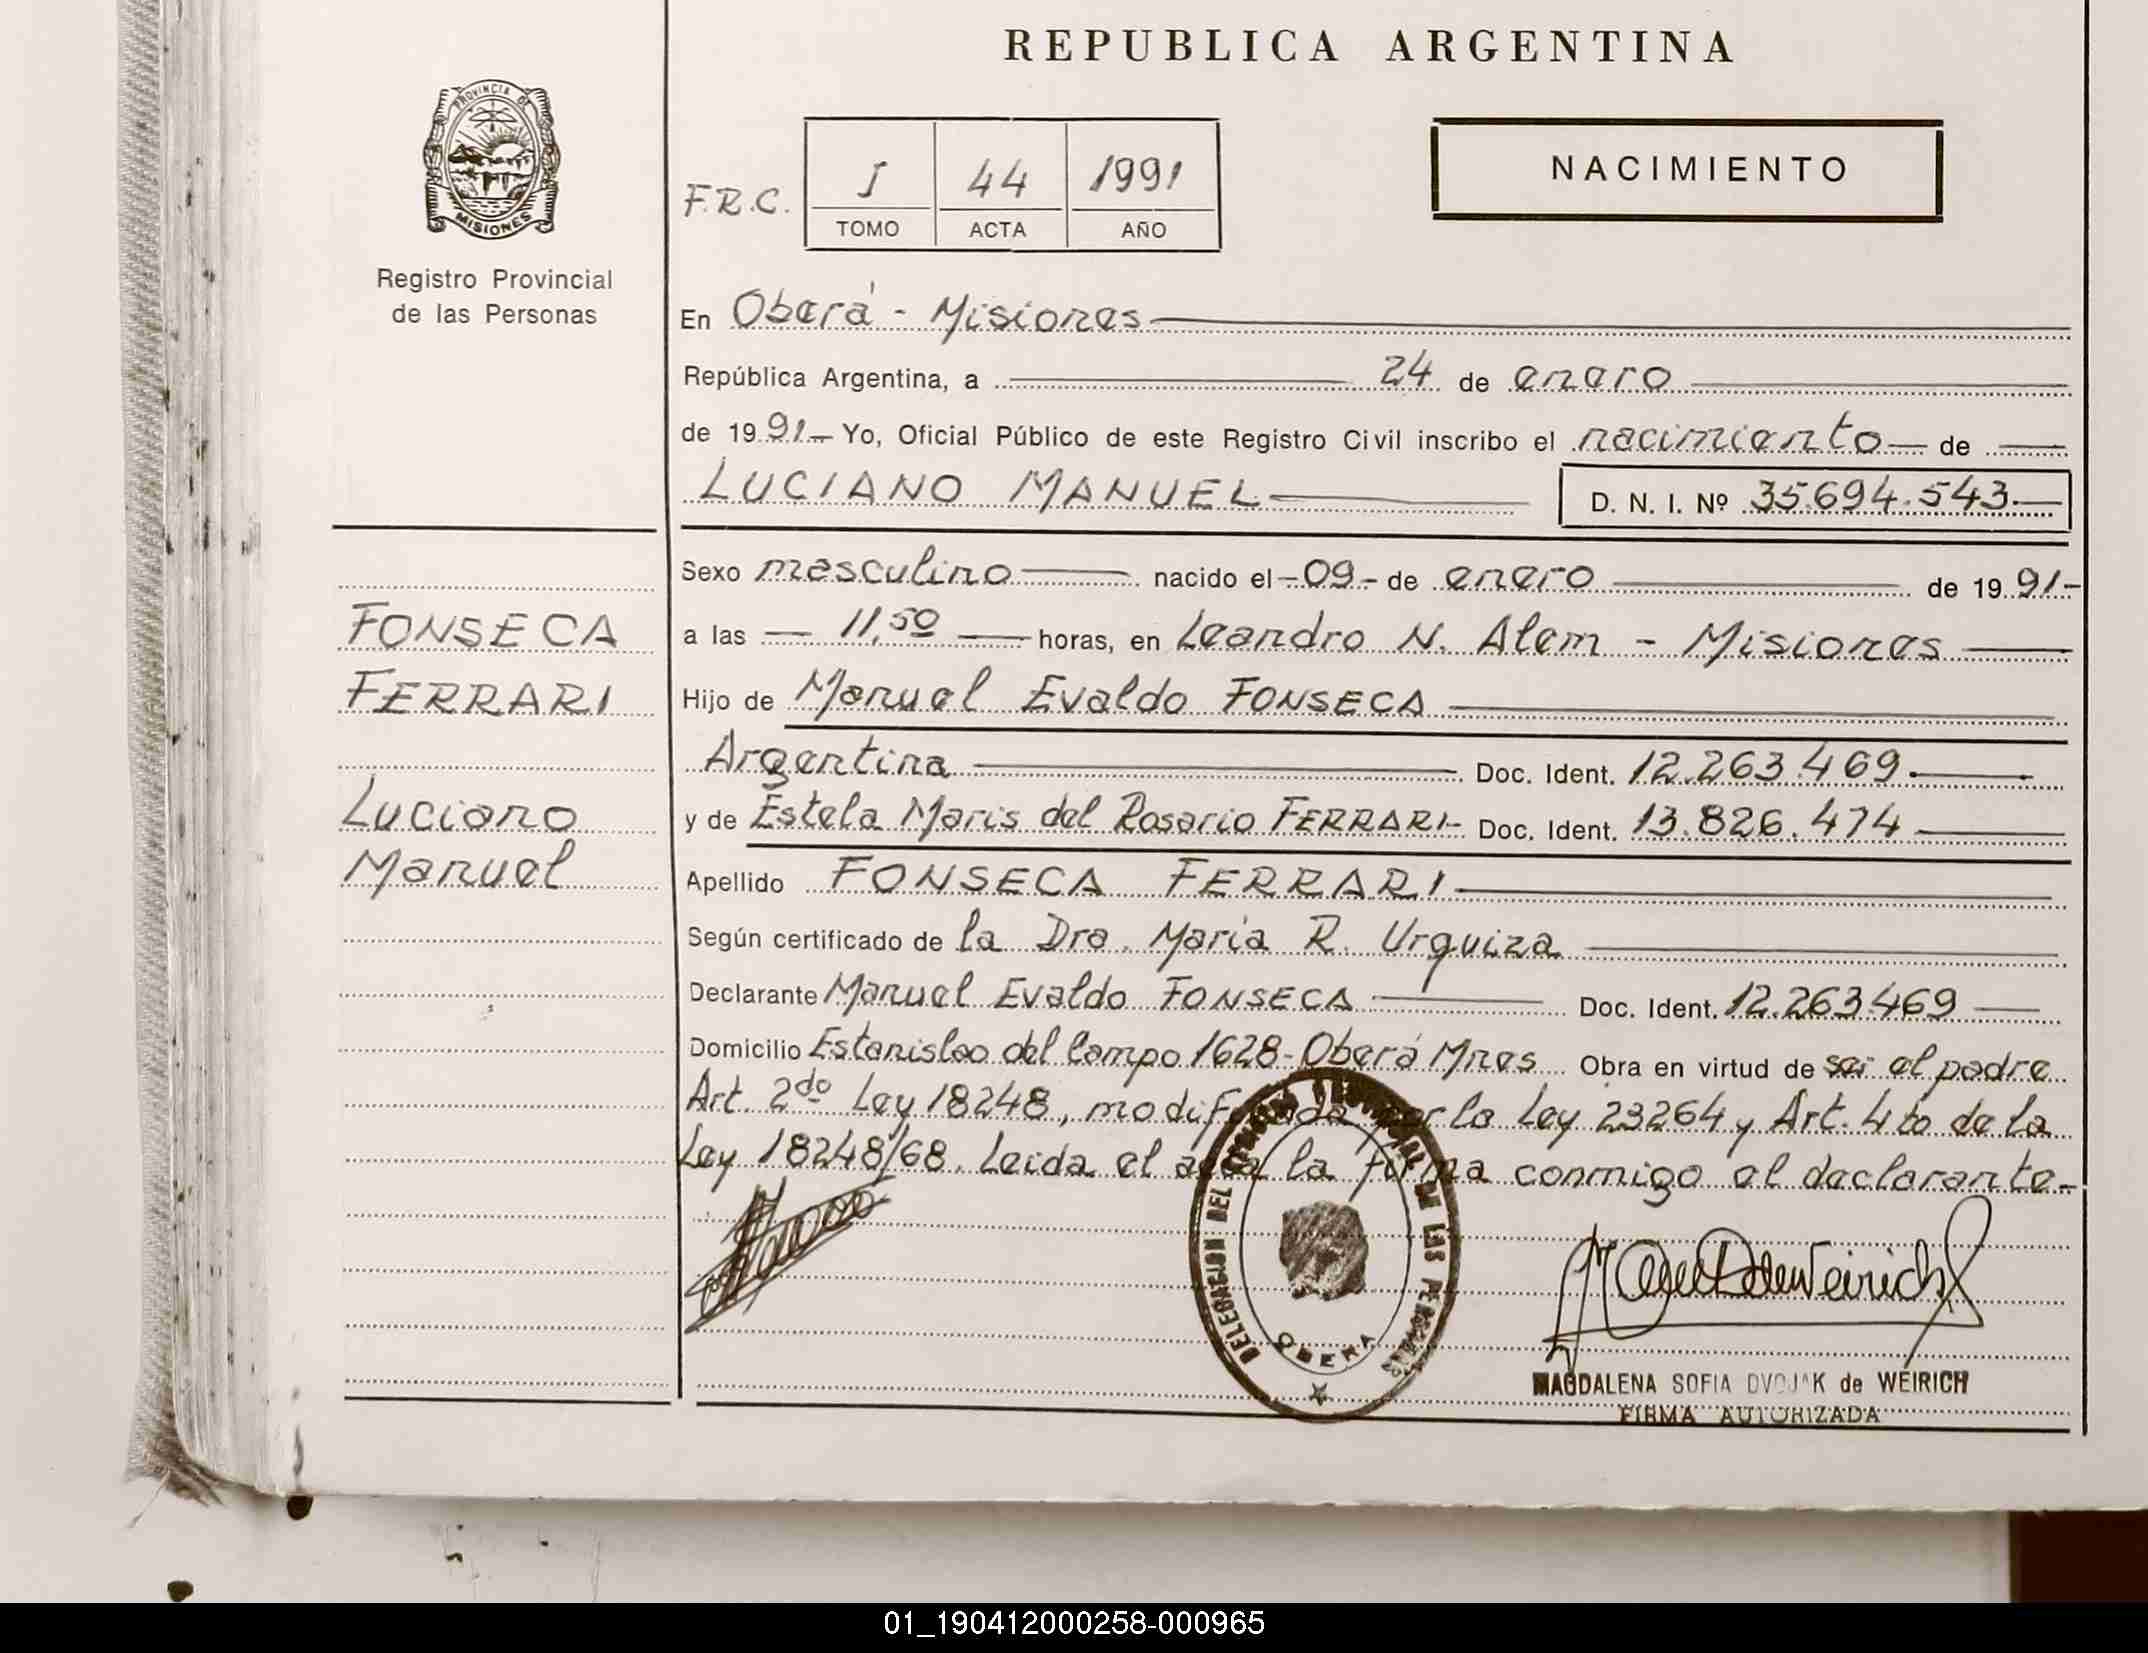 REPUBLICA ARGENTINA
PROVINCIA DE
MISIONES
Registro Provincial
de las Personas
F.R.C.
I 44 1991
TOMO ACTA AÑO
NACIMIENTO
En Oberá - Misiones
República Argentina, a 24 de enero
de 1991 Yo, Oficial Público de este Registro Civil inscribo el nacimiento de
LUCIANO MANUEL D. N. I. Nº 35.694.543.
Sexo masculino nacido el -09- de enero de 1991-
a las 11,50 horas, en Leandro N. Alem - Misiones
Hijo de Manuel Evaldo FONSECA
Argentina Doc. Ident. 12.263.469.
y de Estela Maris del Rosario FERRARI- Doc. Ident. 13.826.474
Apellido FONSECA FERRARI
Según certificado de la Dra. Maria R. Urquiza
Declarante Manuel Evaldo FONSECA Doc. Ident. 12.263.469
Domicilio Estanislao del Campo 1628- Oberá Mnes Obra en virtud de ser el padre
Art. 2do Ley 18248, modificada por la Ley 23264 y Art. 4to de la
Ley 18248/68. Leida el acta la firma conmigo el declarante.-
FONSECA
FERRARI
Luciano
Manuel
DELEGACION DEL REGISTRO PROVINCIAL DE LAS PERSONAS
OBERA
MAGDALENA SOFIA DVOJAK de WEIRICH
FIRMA AUTORIZADA
01_190412000258-000965